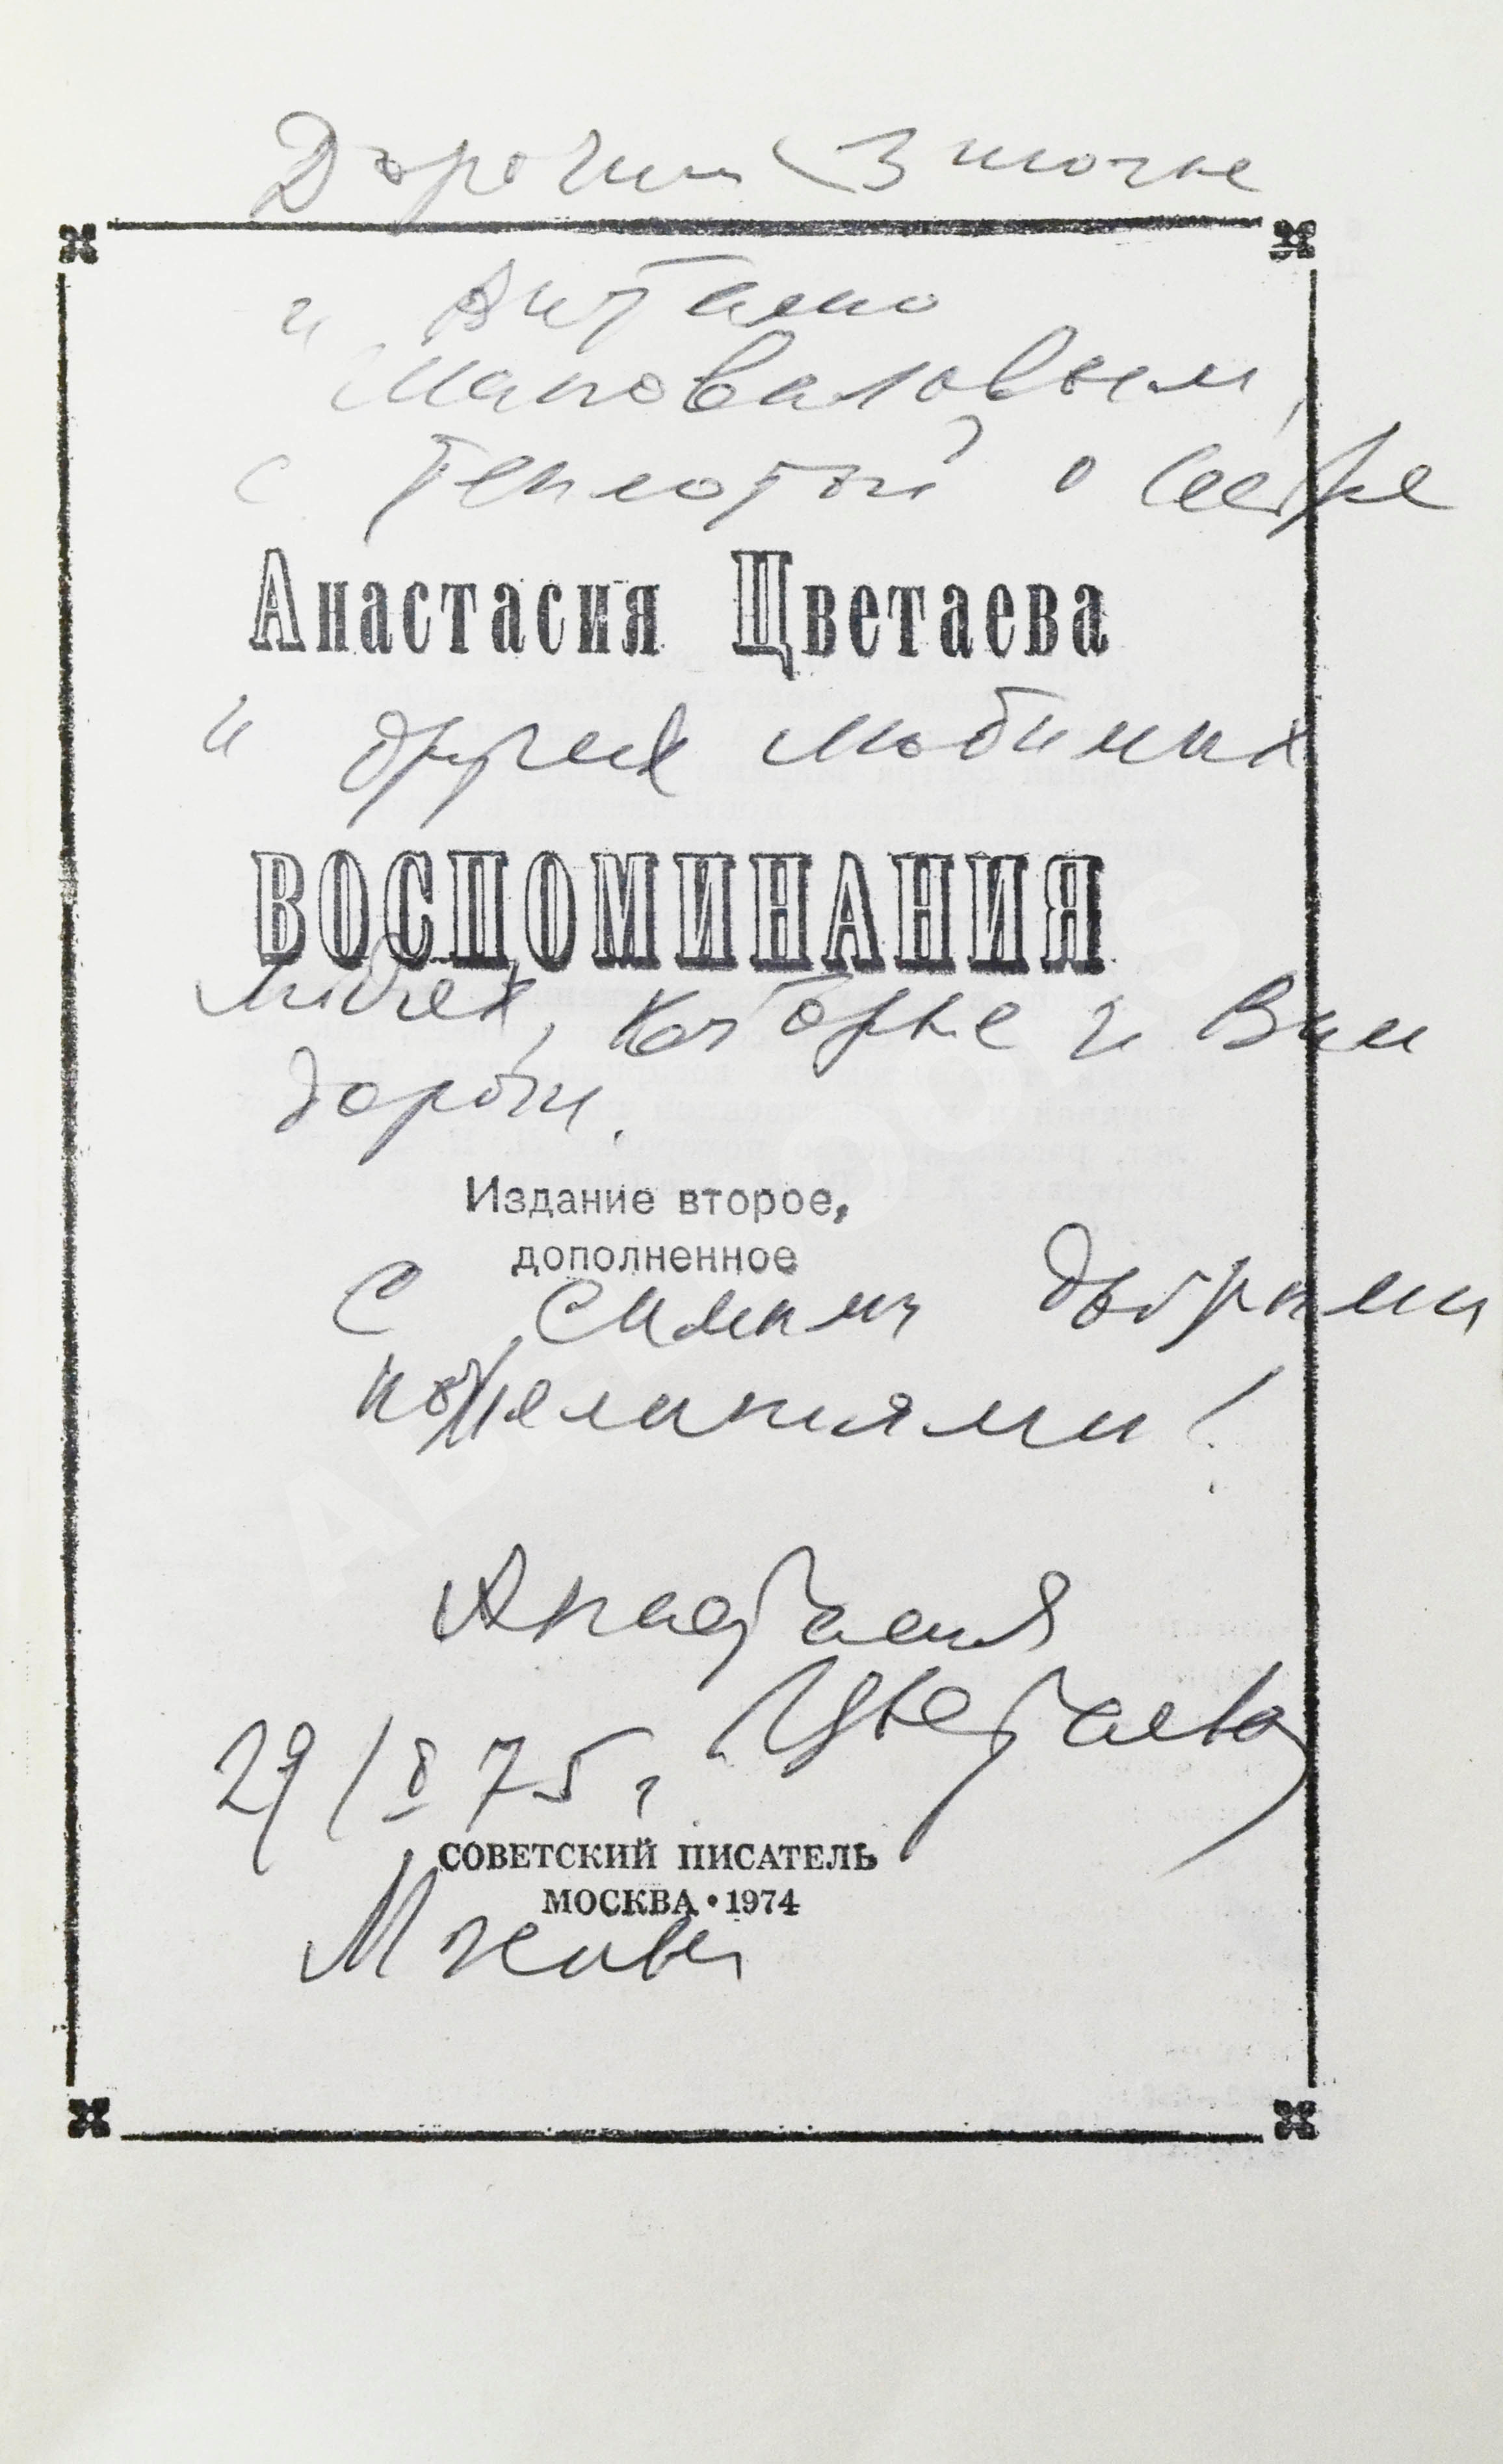 Дорогим Зиночке
и Виталию
Шаповаловым,
с теплотой о сестре
Анастасия Цветаева
и других любимых
ВОСПОМИНАНИЯ
людях, которые и Вам
дороги.
Издание второе,
дополненное
С самыми добрыми
пожеланиями!
Анастасия
Цветаева
29/II 75 г.
СОВЕТСКИЙ ПИСАТЕЛЬ
МОСКВА • 1974
Москва